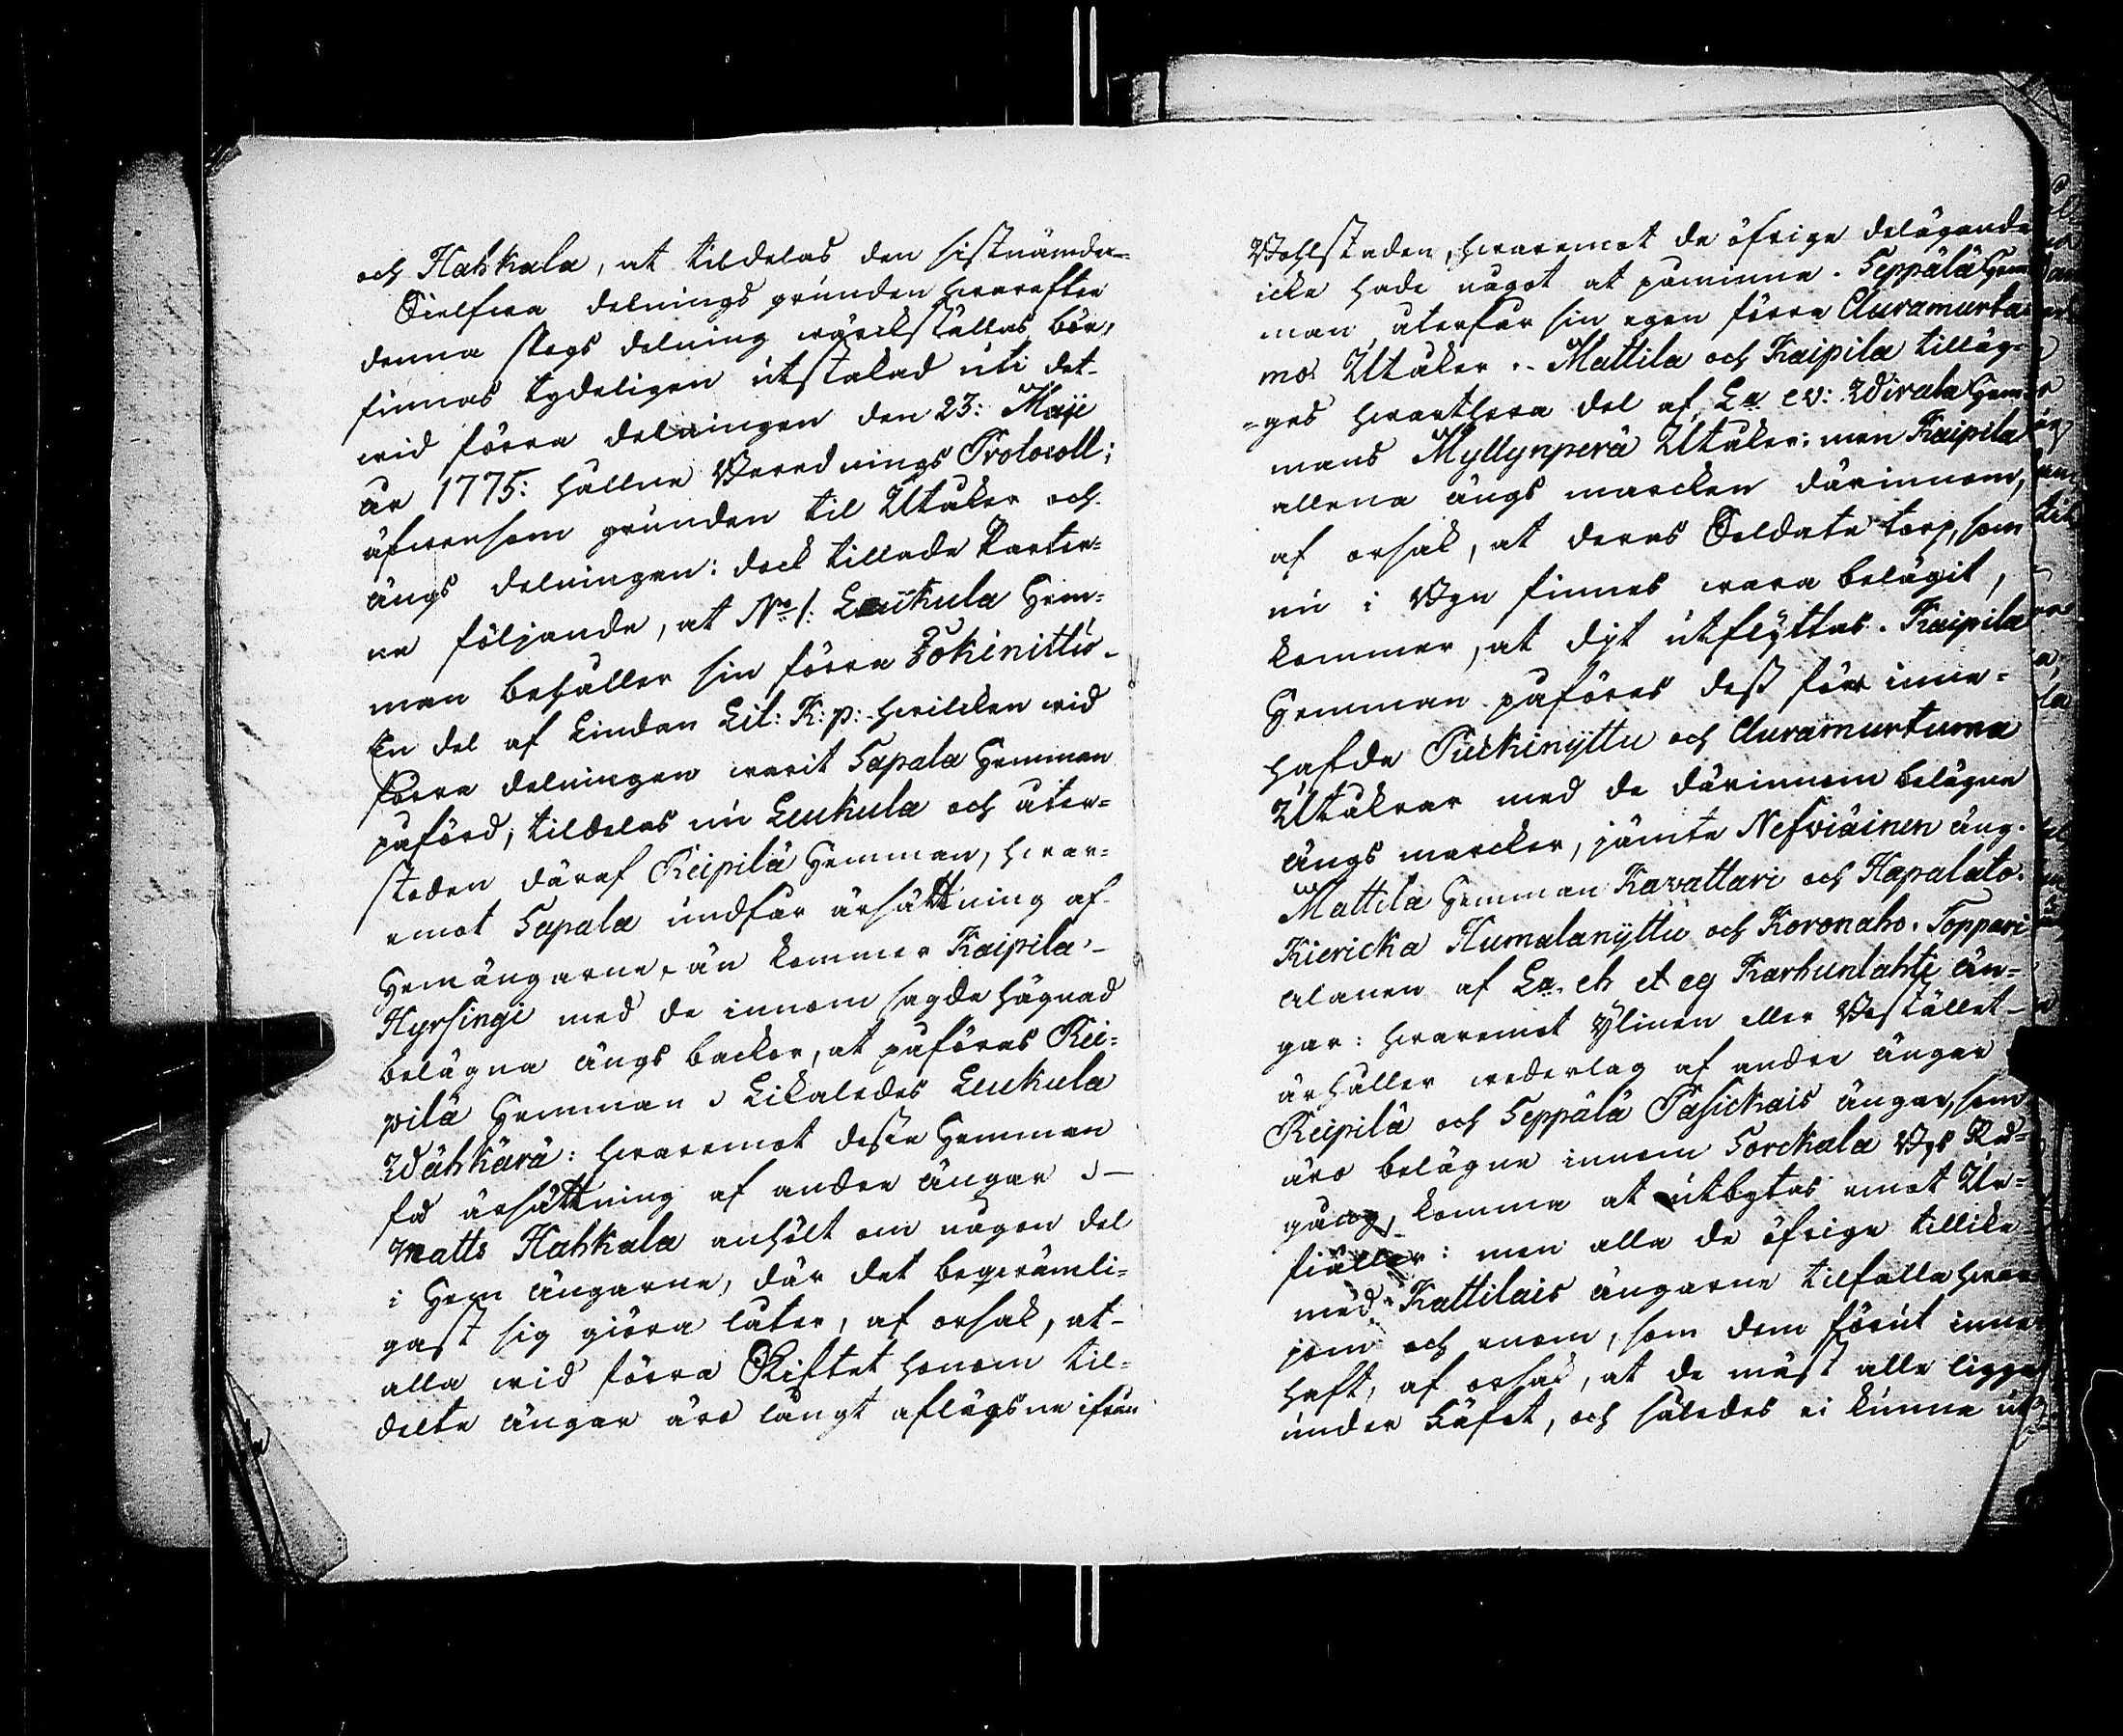 och Hahkala, at tildelas den sistnämda_
Sielfwa delnings grunden hwarefter
denna skogs delning wärckställas bör,
finnas tydeligen utstakad uti det_
wid förra delningen den 23: Maji
år 1775: hållne Berednings Protocoll;
äfwensom grunden til Utåker och
ängs delningen: dock tillade Parter=
ne följande, at No 1: Leukula Hem=
man behåller sin förra Jokinittu_
En del af Lindan Lit: K: p: hwilcken wid
förra delningen warit Sapala Hemman
påförd, tildelas nu Leukula och åter=
stoden däraf Reipilä Hemman, hwar=
emot Sapala undfår ärsättning af
Hemängarne, än kommer Kaipila_
Hyrsingi med de innom sagde hägnad
belägna ängs backer, at påföras Rei=
pilä Hemman Likaledes Leukula
Wähkärä: hwaremot desse Hemman
få ärsättning af andre ängar
Matts Hahkala anhölt om någon del
i Hem ängarne, där det beqwämli=
gast sig giöra låter, af orsak, at_
alla wid förra Skiftet honom til=
delte ängar äro långt aflägsne ifrån
Bohlstaden, hwaremot de öfrige delägande
icke hade något at påminna. Seppälä Hem
man, återfår sin egen förra Auramurta
mo Utåker. Mattila och Kaipila tilläg=
=ges hwarthera del af La ev: Wirala Hem=
mans Myllynperä Utåker: men Kaipila
allena ängs marcken därinnom,
af orsak, at deras Soldate torp, som
nu i Byn finnes wara belägit,
kommer, at dit utflyttas. Kaipila
Hemman påföres dess förr inne=
hafde Puckinyttu och Auramurtuma
Utåkrar med de därinnom belägne
ängs marcker, jämte Nefwiäinen äng.
Mattila Hemman Kavattari och Hapalato.
Kiericka Humalanyttu och Koronaho. Toppari
alanen af La. eh et eg Karhunlahti än=
gar: hwaremot Ylinen eller Bostället_
ärhåller wederlag af andre ängar
Reipilä och Seppälä Pasickais ängar, som
äro belägne innom Sorckala Bys Rå=
gång, komma at utbytas emot Ur=
fiäller: men alla de öfrige tillika
med Kattilais ängarne tilfalla hwar=
jom och enom, som dem förut inne
haft, af orsak, at de mäst alle ligga
under Häfd, och således ei kunna ut